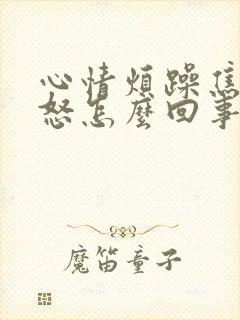 心情煩躁焦
怒怎麼回事
魔笛童子